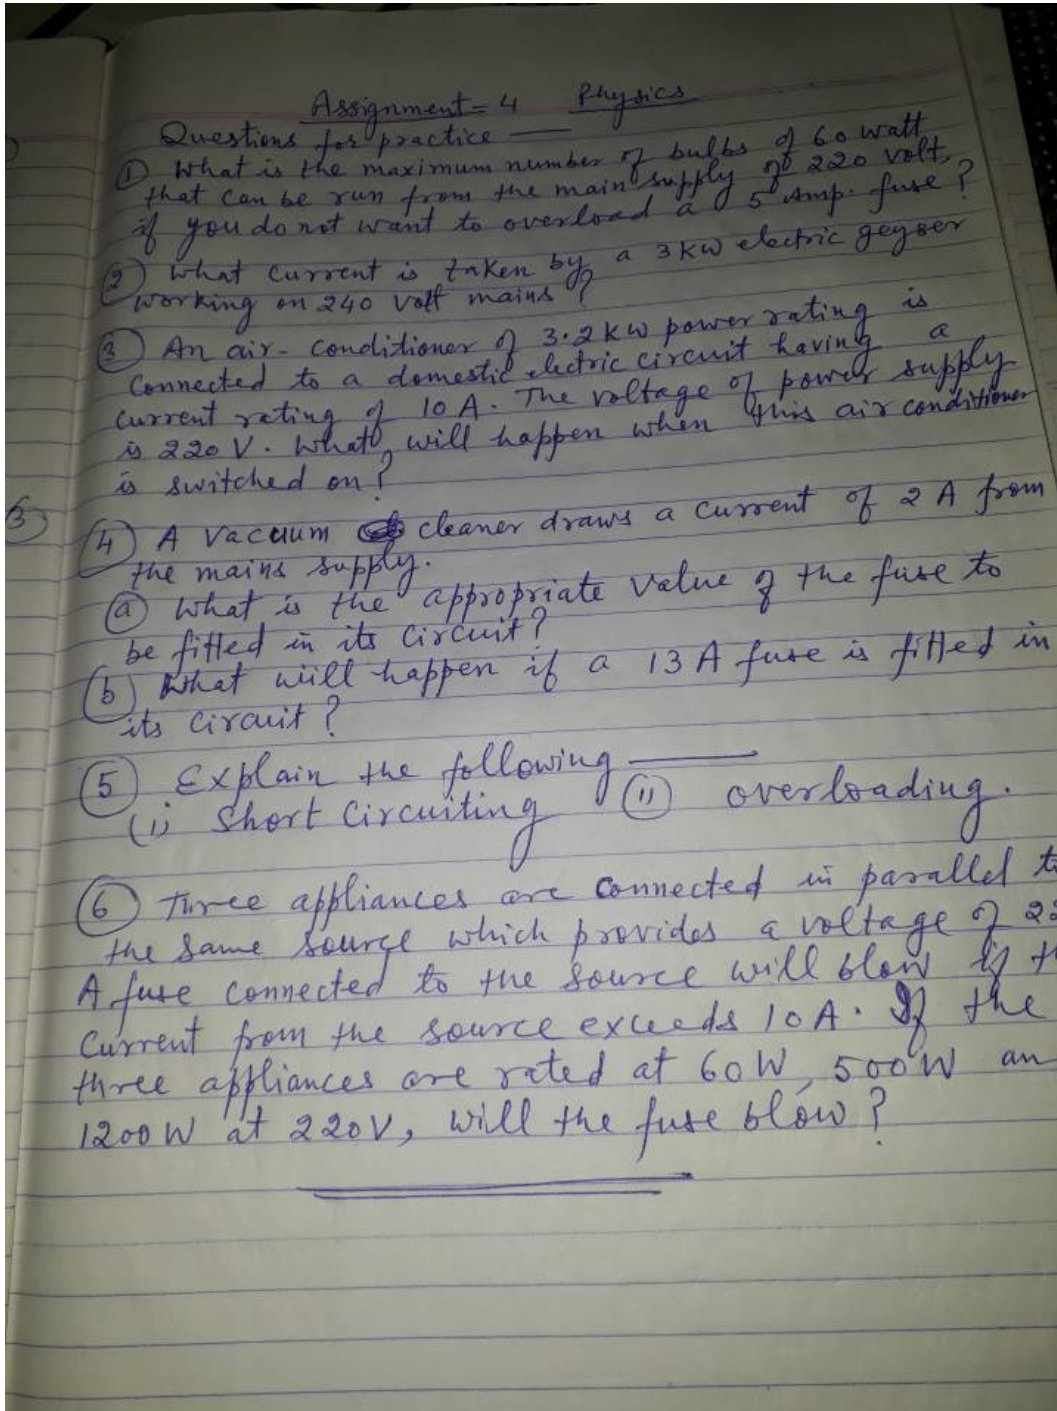 Assignment = 4 Physics
Questions for practice —
① What is the maximum number of bulbs of 60 watt
that can be run from the main supply of 220 volt,
if you do not want to overload a 5 Amp. fuse?
② What current is taken by a 3 KW electric geyser
working on 240 volt mains?
③ An air-conditioner of 3.2 KW power rating is
connected to a domestic electric circuit having a
current rating of 10 A. The voltage of power supply
is 220 V. What will happen when this air conditioner
is switched on?
③
④ A vacuum cleaner draws a current of 2 A from
the mains supply.
ⓐ What is the appropriate value of the fuse to
be fitted in its circuit?
ⓑ What will happen if a 13 A fuse is fitted in
its circuit?
⑤ Explain the following —
(i) Short Circuiting (ii) overloading.
⑥ Three appliances are connected in parallel to
the same source which provides a voltage of 22
A fuse connected to the source will blow if th
current from the source exceeds 10 A. If the
three appliances are rated at 60 W, 500 W an
1200 W at 220 V, will the fuse blow?